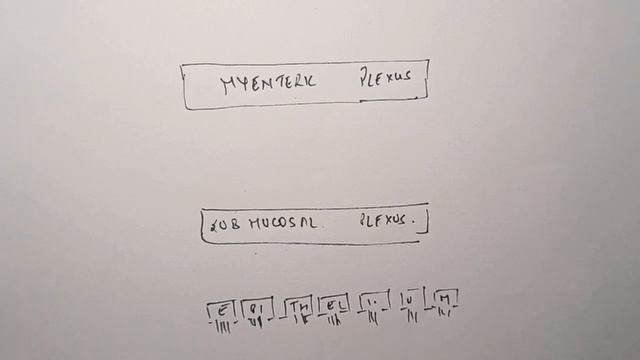 MYENTERIC PLEXUS
SUB MUCOSAL PLEXUS.
E PI TH EL I U M